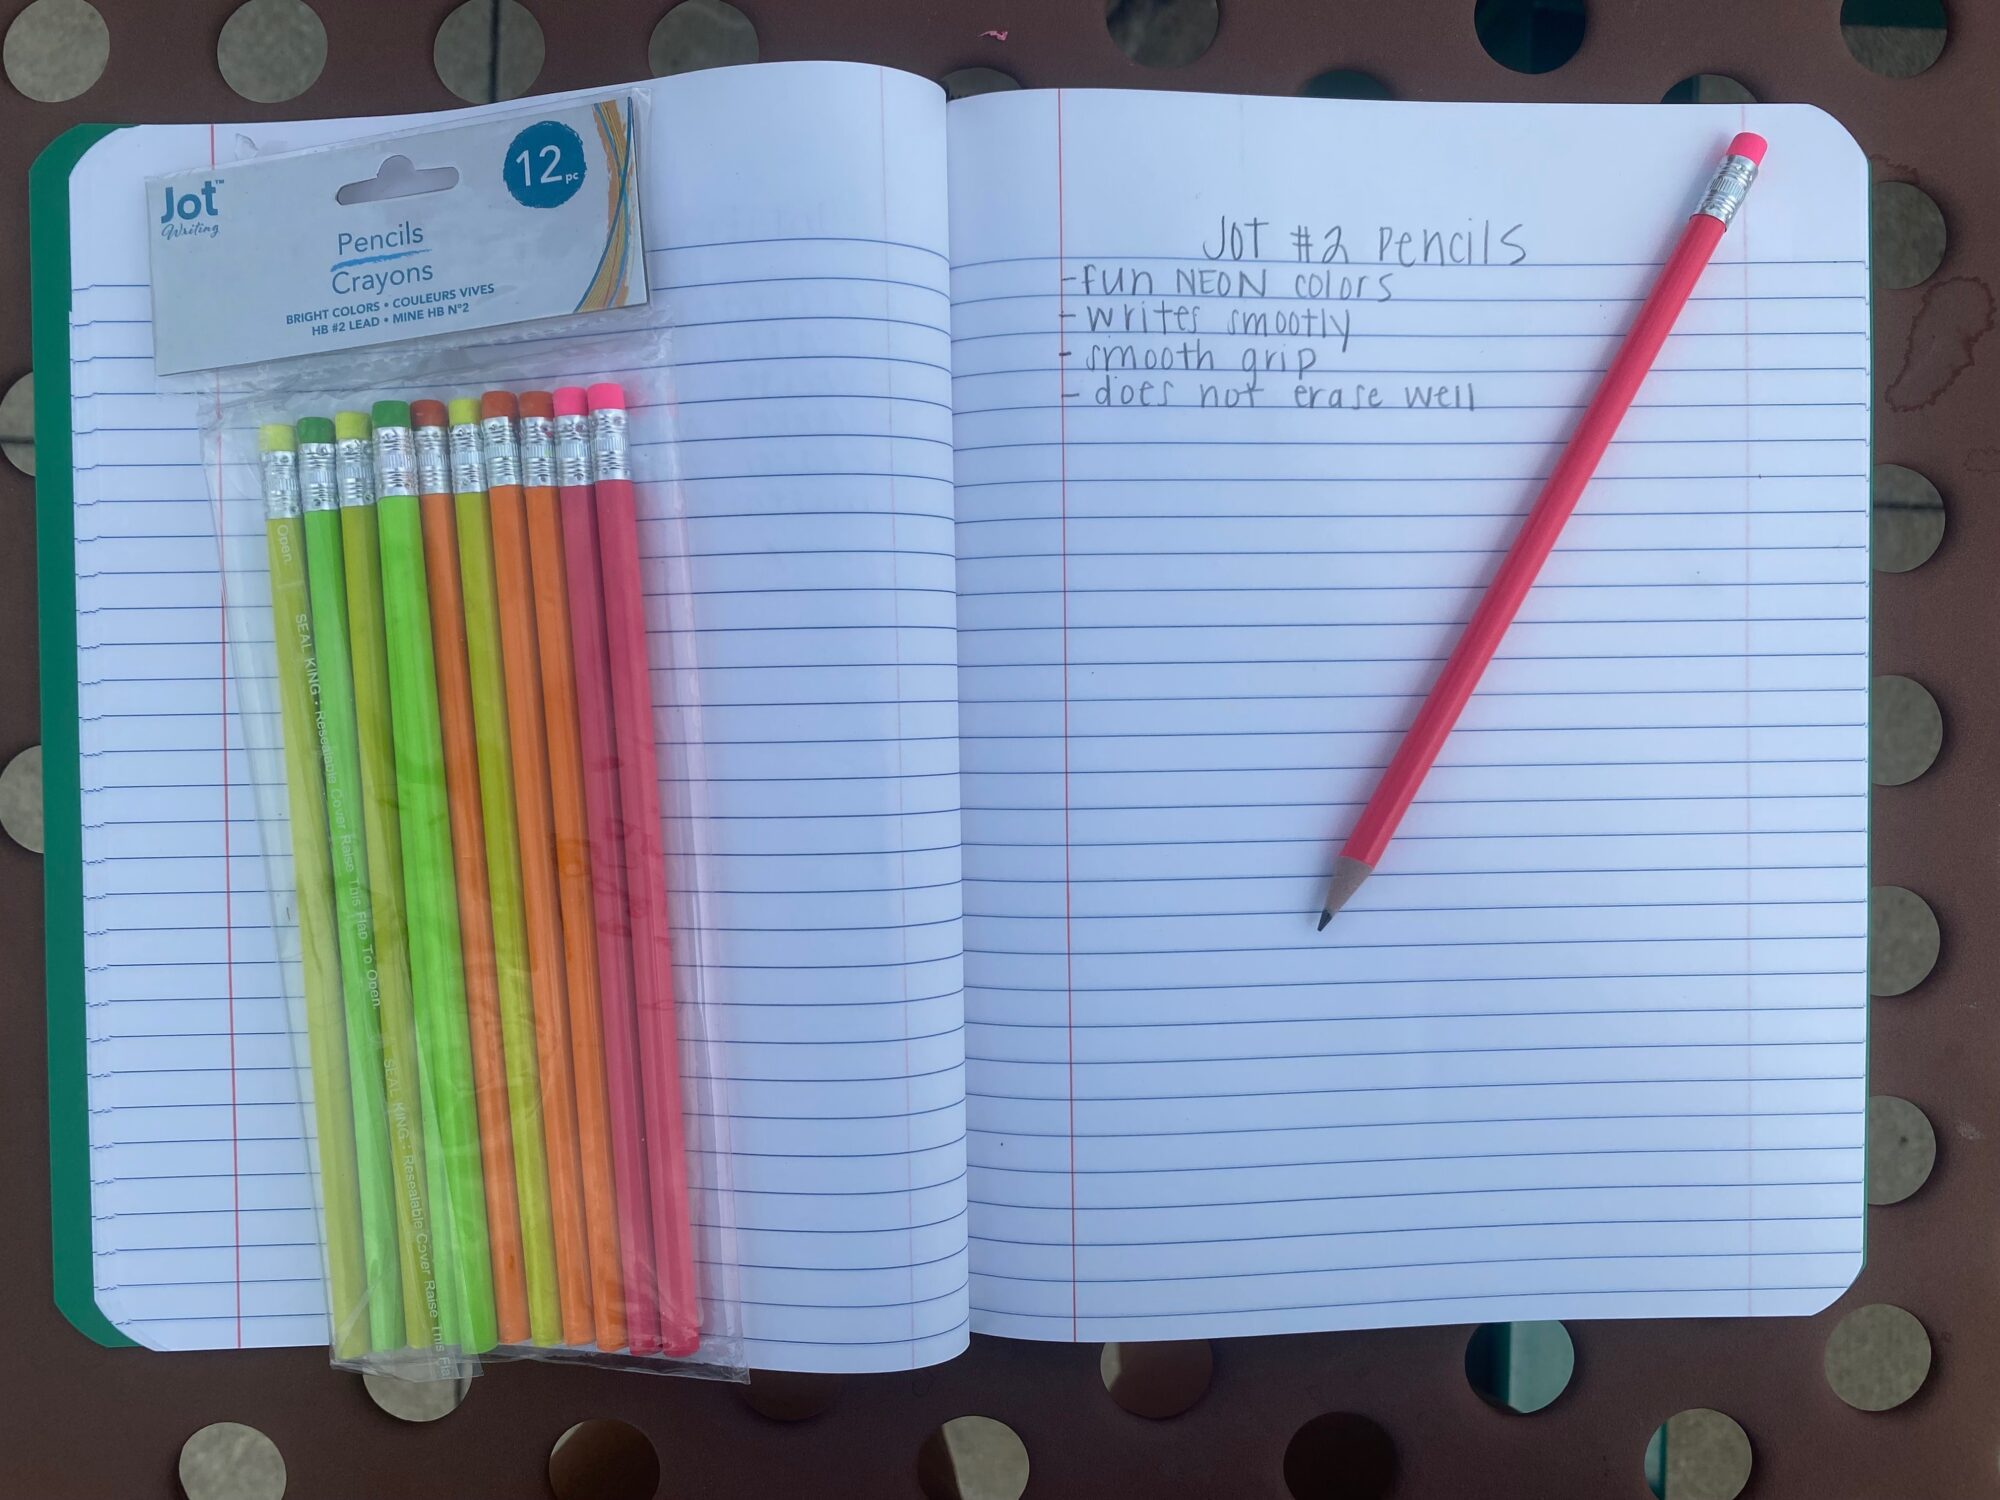 Jot™
Writing
12 pc
Pencils
Crayons
BRIGHT COLORS • COULEURS VIVES
HB #2 LEAD • MINE HB N°2
Open.
SEAL KING: Resealable Cover Raise This Flap To Open.
SEAL KING: Resealable Cover Raise This Fla
JOT #2 Pencils
-fun NEON colors
- writes smootly
- smooth grip
- does not erase well